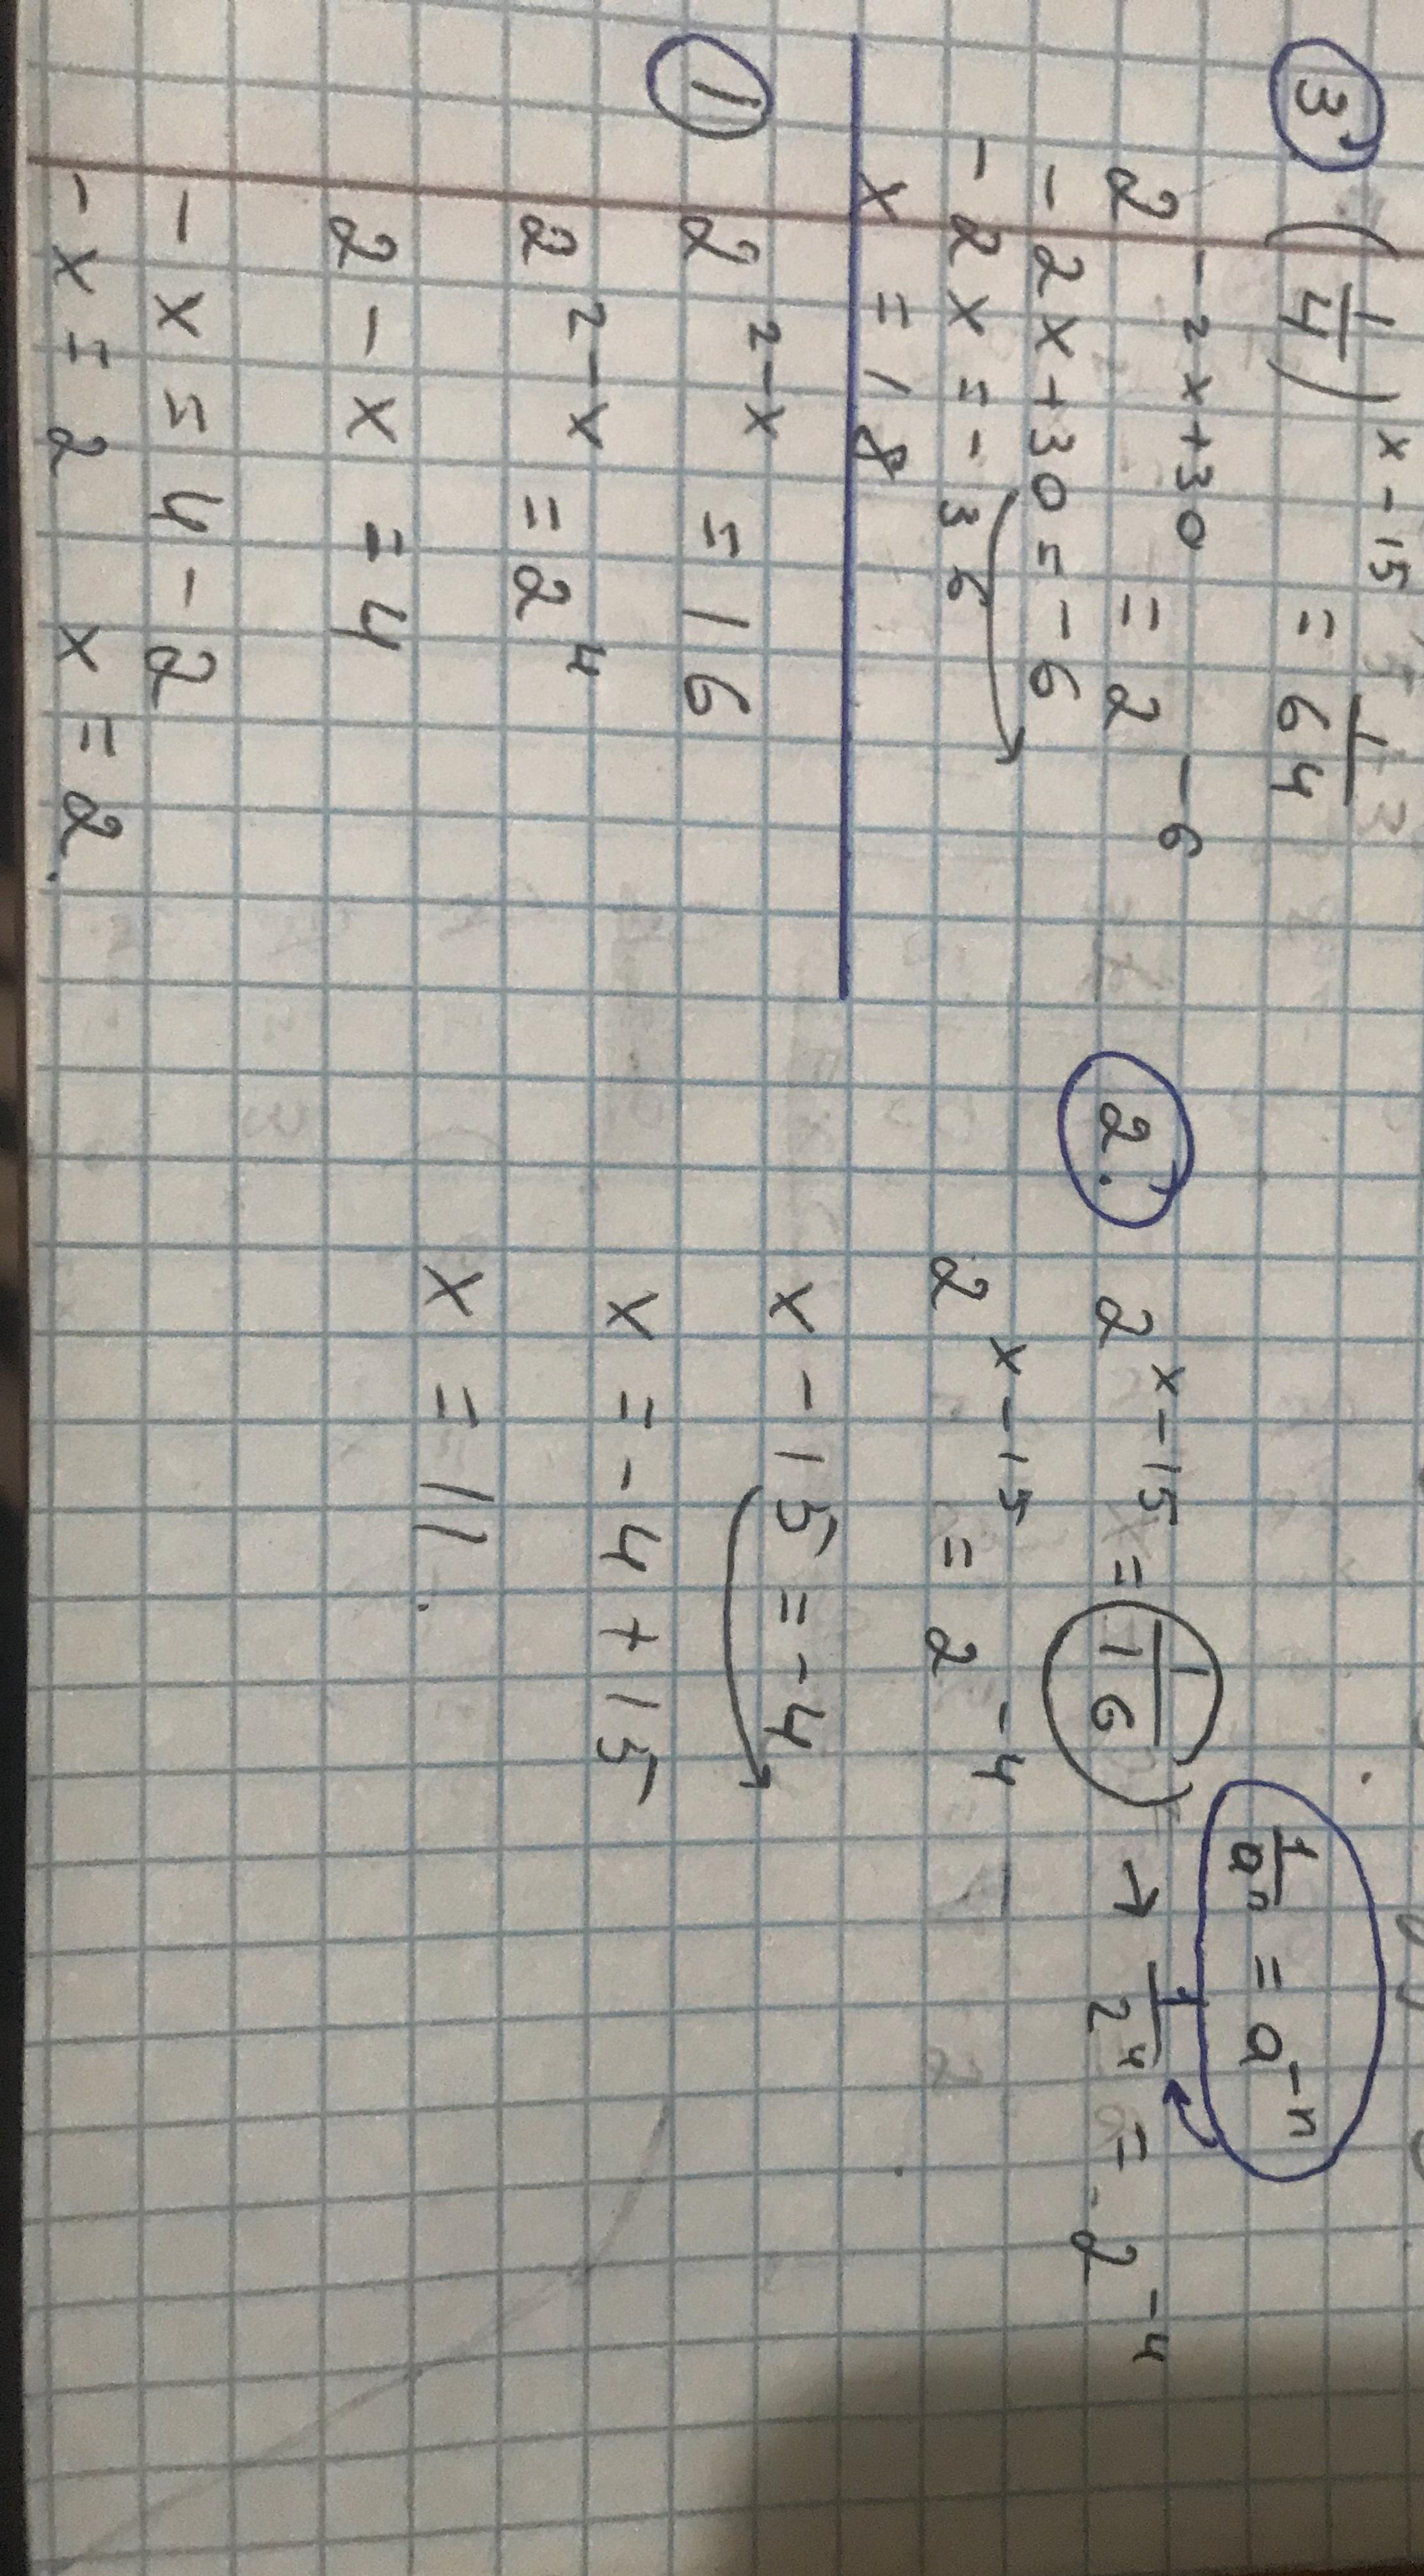 3) (1/4)^(x-15) = 1/64
2^(-2x+30) = 2^(-6)
-2x+30 = -6
-2x = -36
x = 18
1) 2^(2-x) = 16
2^(2-x) = 2^4
2-x = 4
-x = 4-2
-x = 2 x = 2.
1/a^n = a^(-n)
2.) 2^(x-15) = 1/16 → 1/2^4 = 2^(-4)
2^(x-15) = 2^(-4)
x-15 = -4
x = -4+15
x = 11.